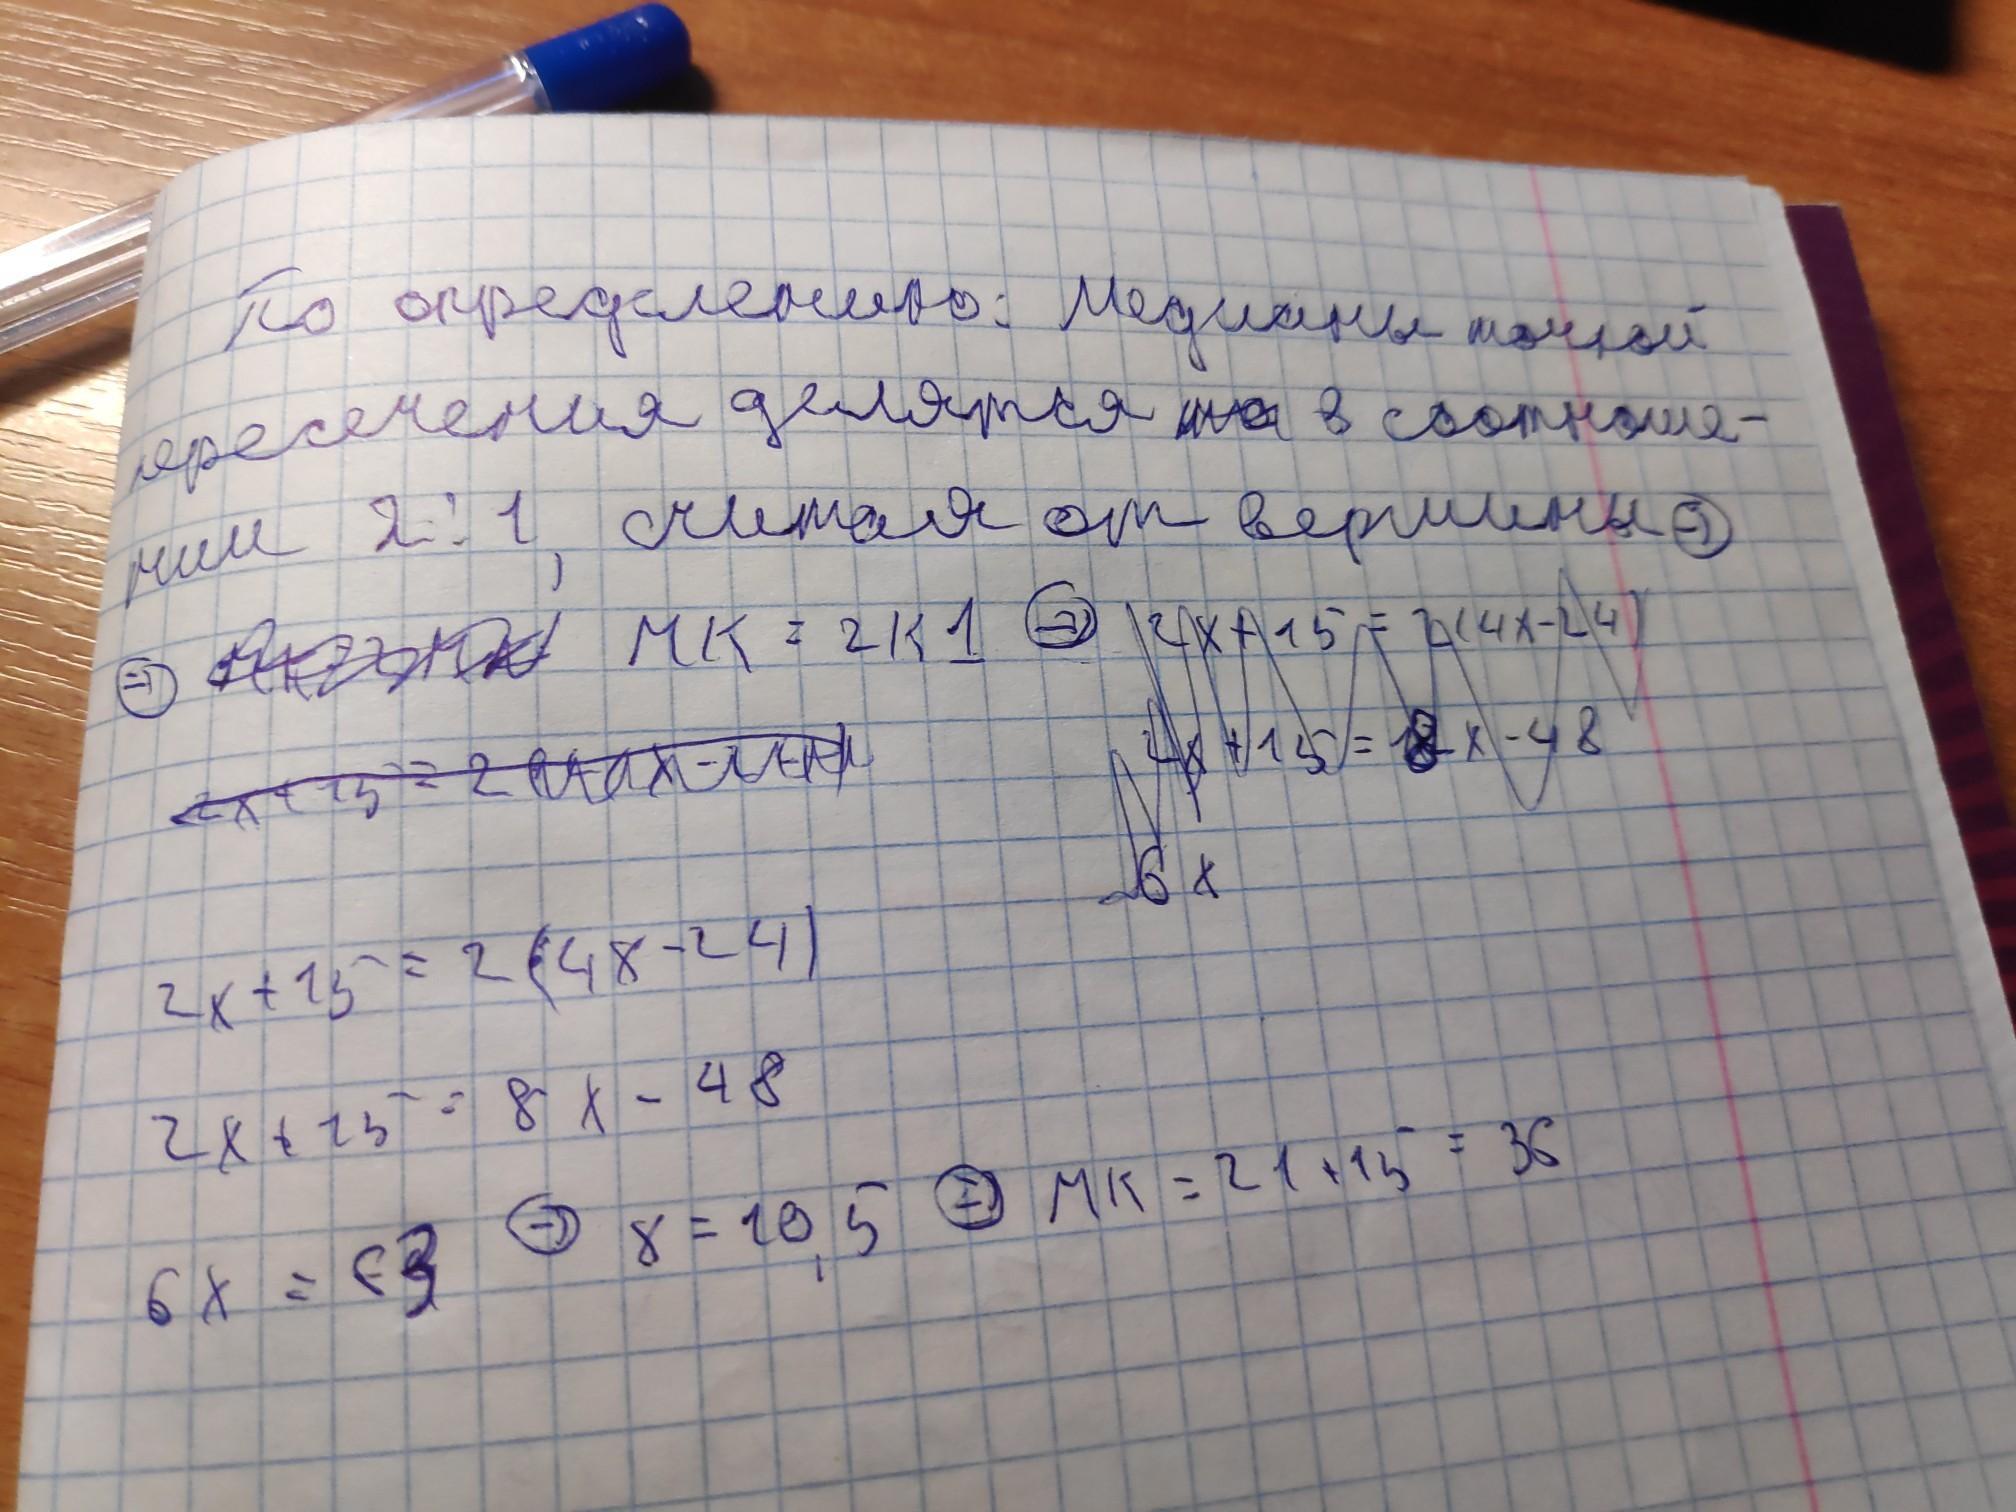 По определению: Медианы точкой
пересечения делятся на в соотноше-
нии 2:1, считая от вершины ⇒
⇒ MK = 2K1 ⇒ 2x+15=2(4x-24)
2x+15=2
2x+15=8x-48
6x
2x+15=2(4x-24)
2x+15=8x-48
6x=63 ⇒ x=10,5 ⇒ MK=21+15=36